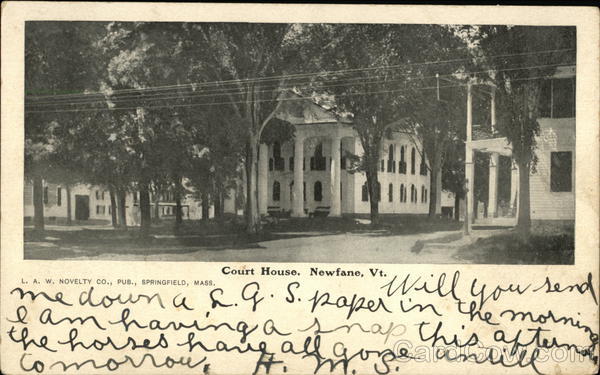 Court House. Newfane, Vt.
L. A. W. NOVELTY CO., PUB., SPRINGFIELD, MASS.
Will you send
me down a L. G. S. paper in the morning
I am having a snap this afternoon
the horses have all gone until
tomorrow. H. M. S.
CardCow.com